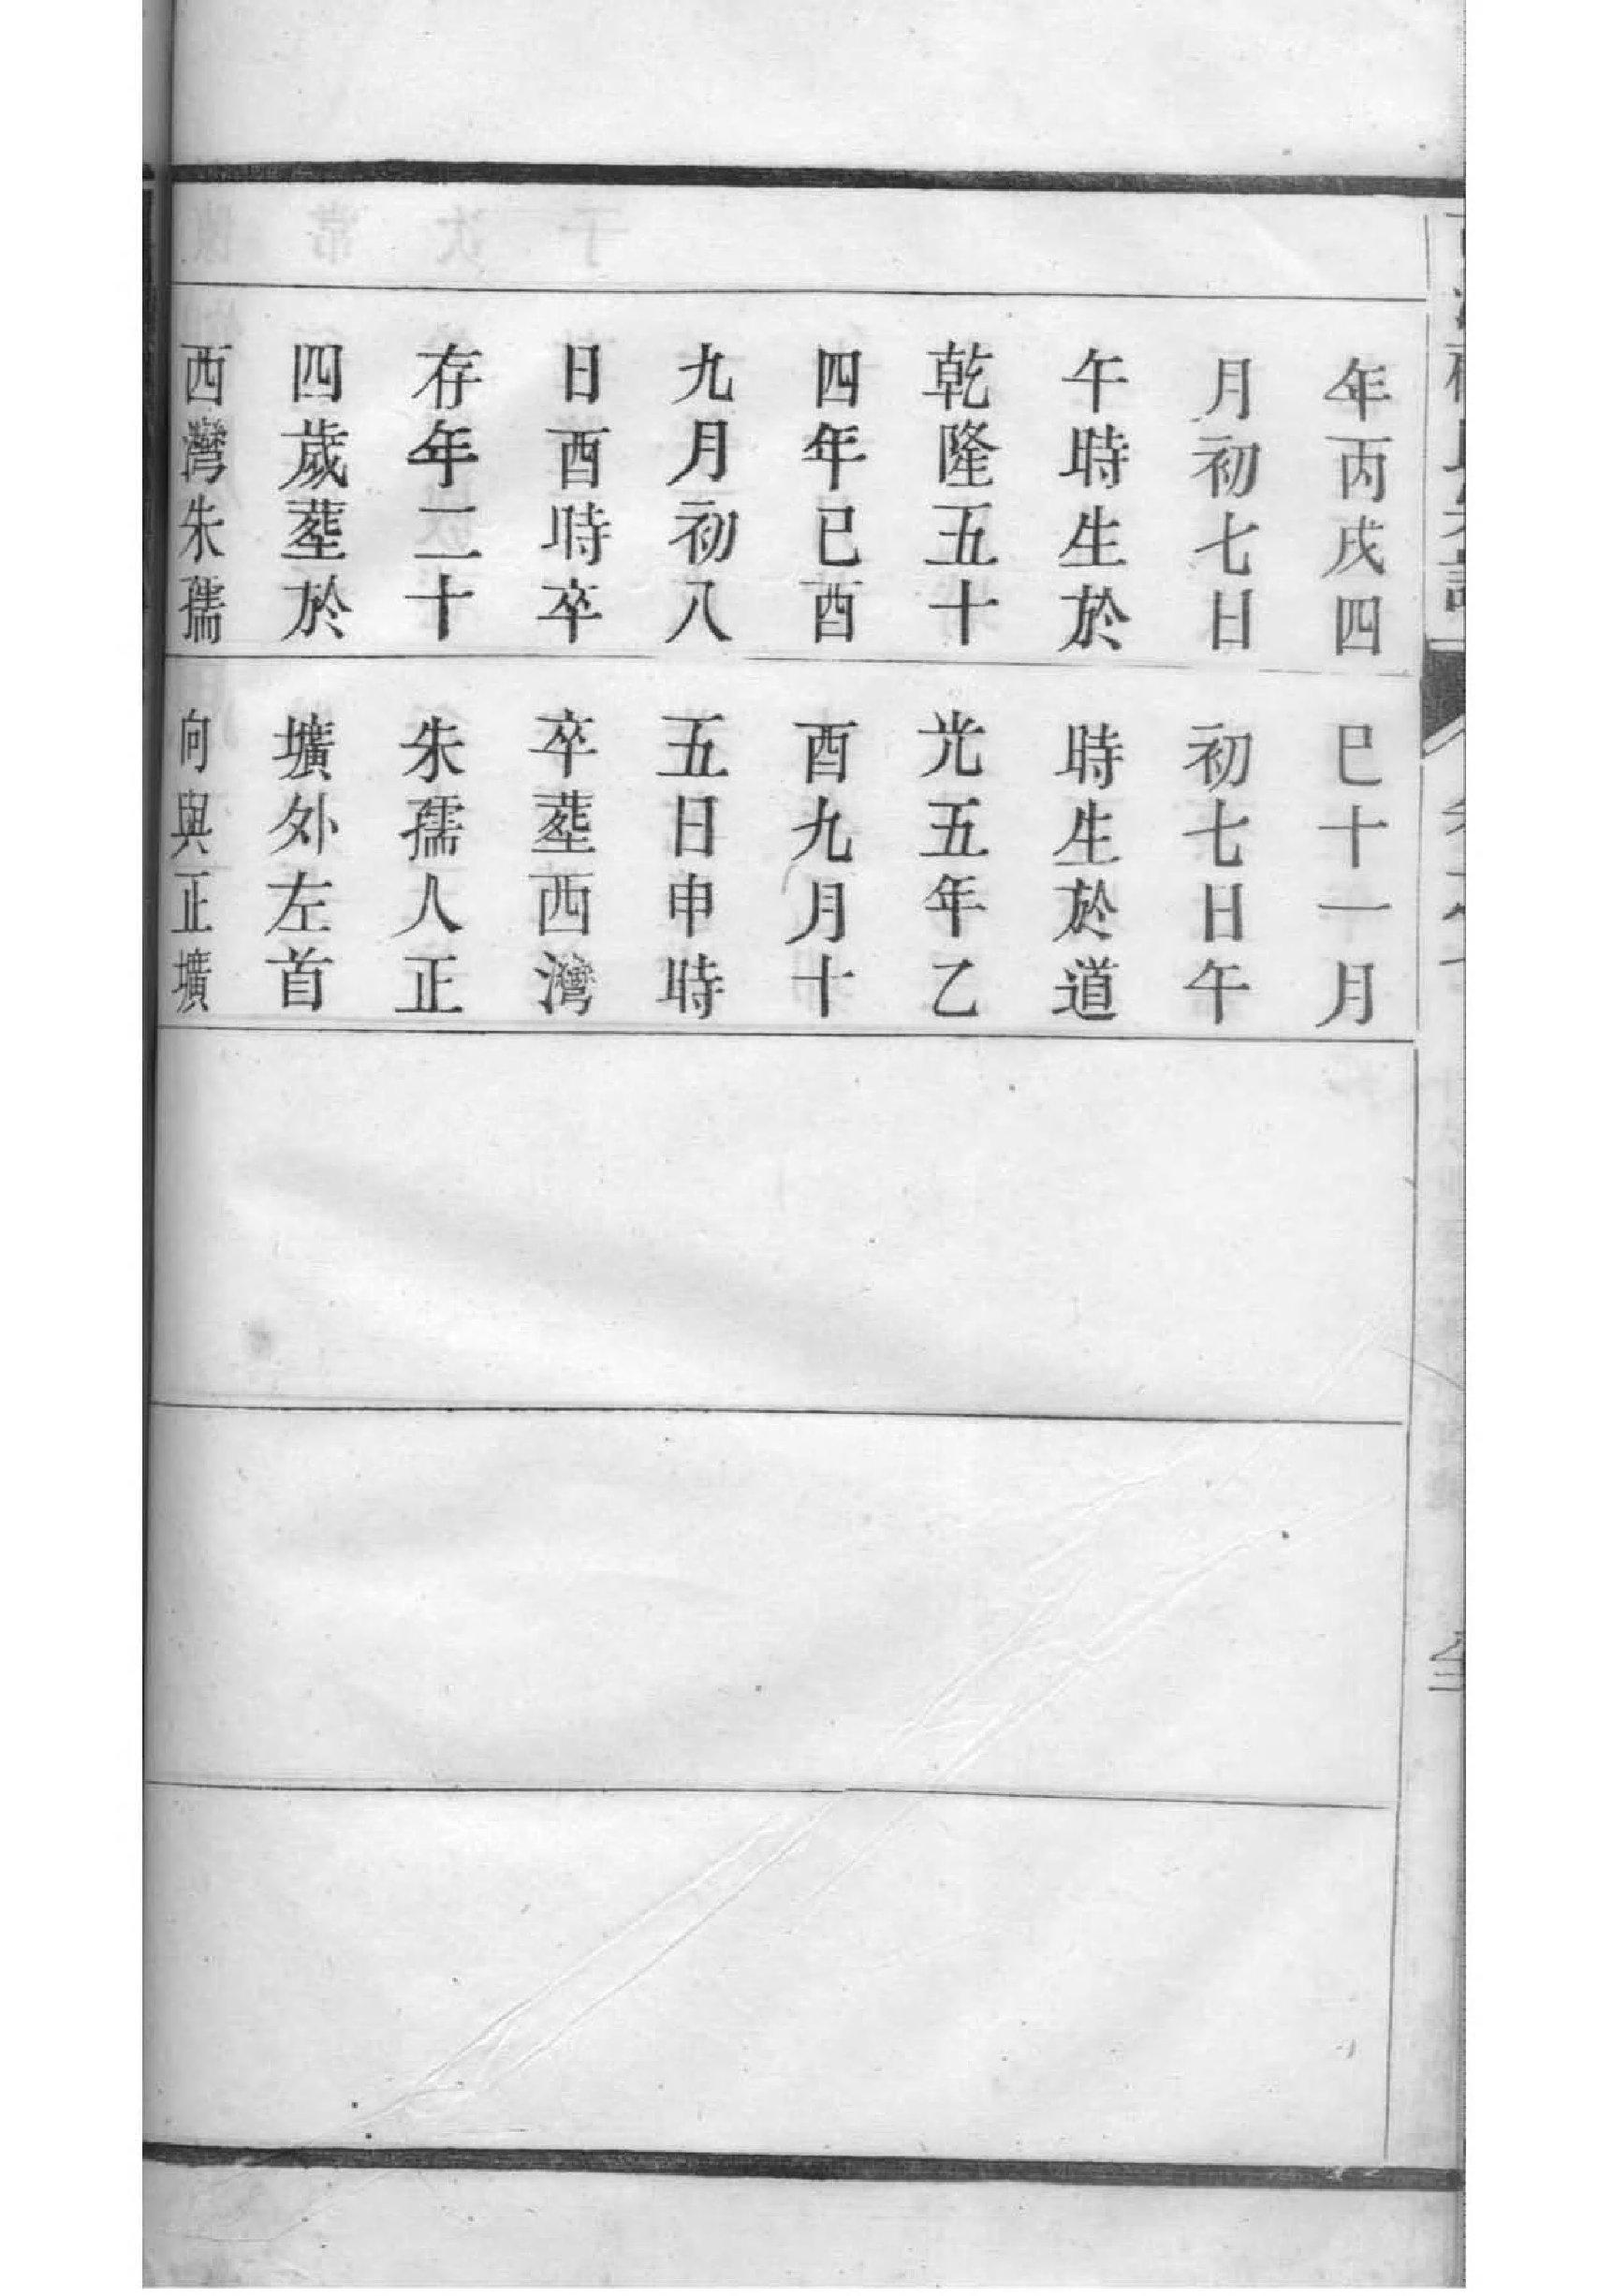 年丙戌四
月初七日
午時生於
乾隆五十
四年已酉
九月初八
日酉時卒
存年二十
四歲塟於
西灣朱孺
巳十一月
初七日午
時生於道
光五年乙
酉九月十
五日申時
卒塟西灣
朱孺人正
壙外左首
向與正壙